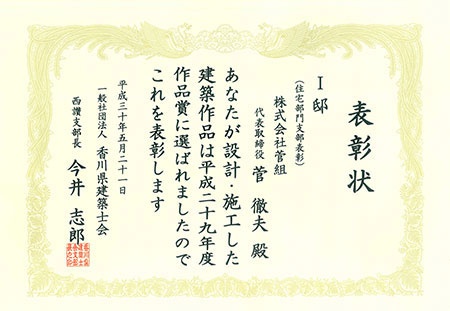 表彰状
I邸
(住宅部門支部表彰)
株式会社菅組
代表取締役 菅 徹夫 殿
あなたが設計・施工した
建築作品は平成二十九年度
作品賞に選ばれましたので
これを表彰します
平成三十年五月二十一日
一般社団法人 香川県建築士会
西讃支部長 今井 志郎